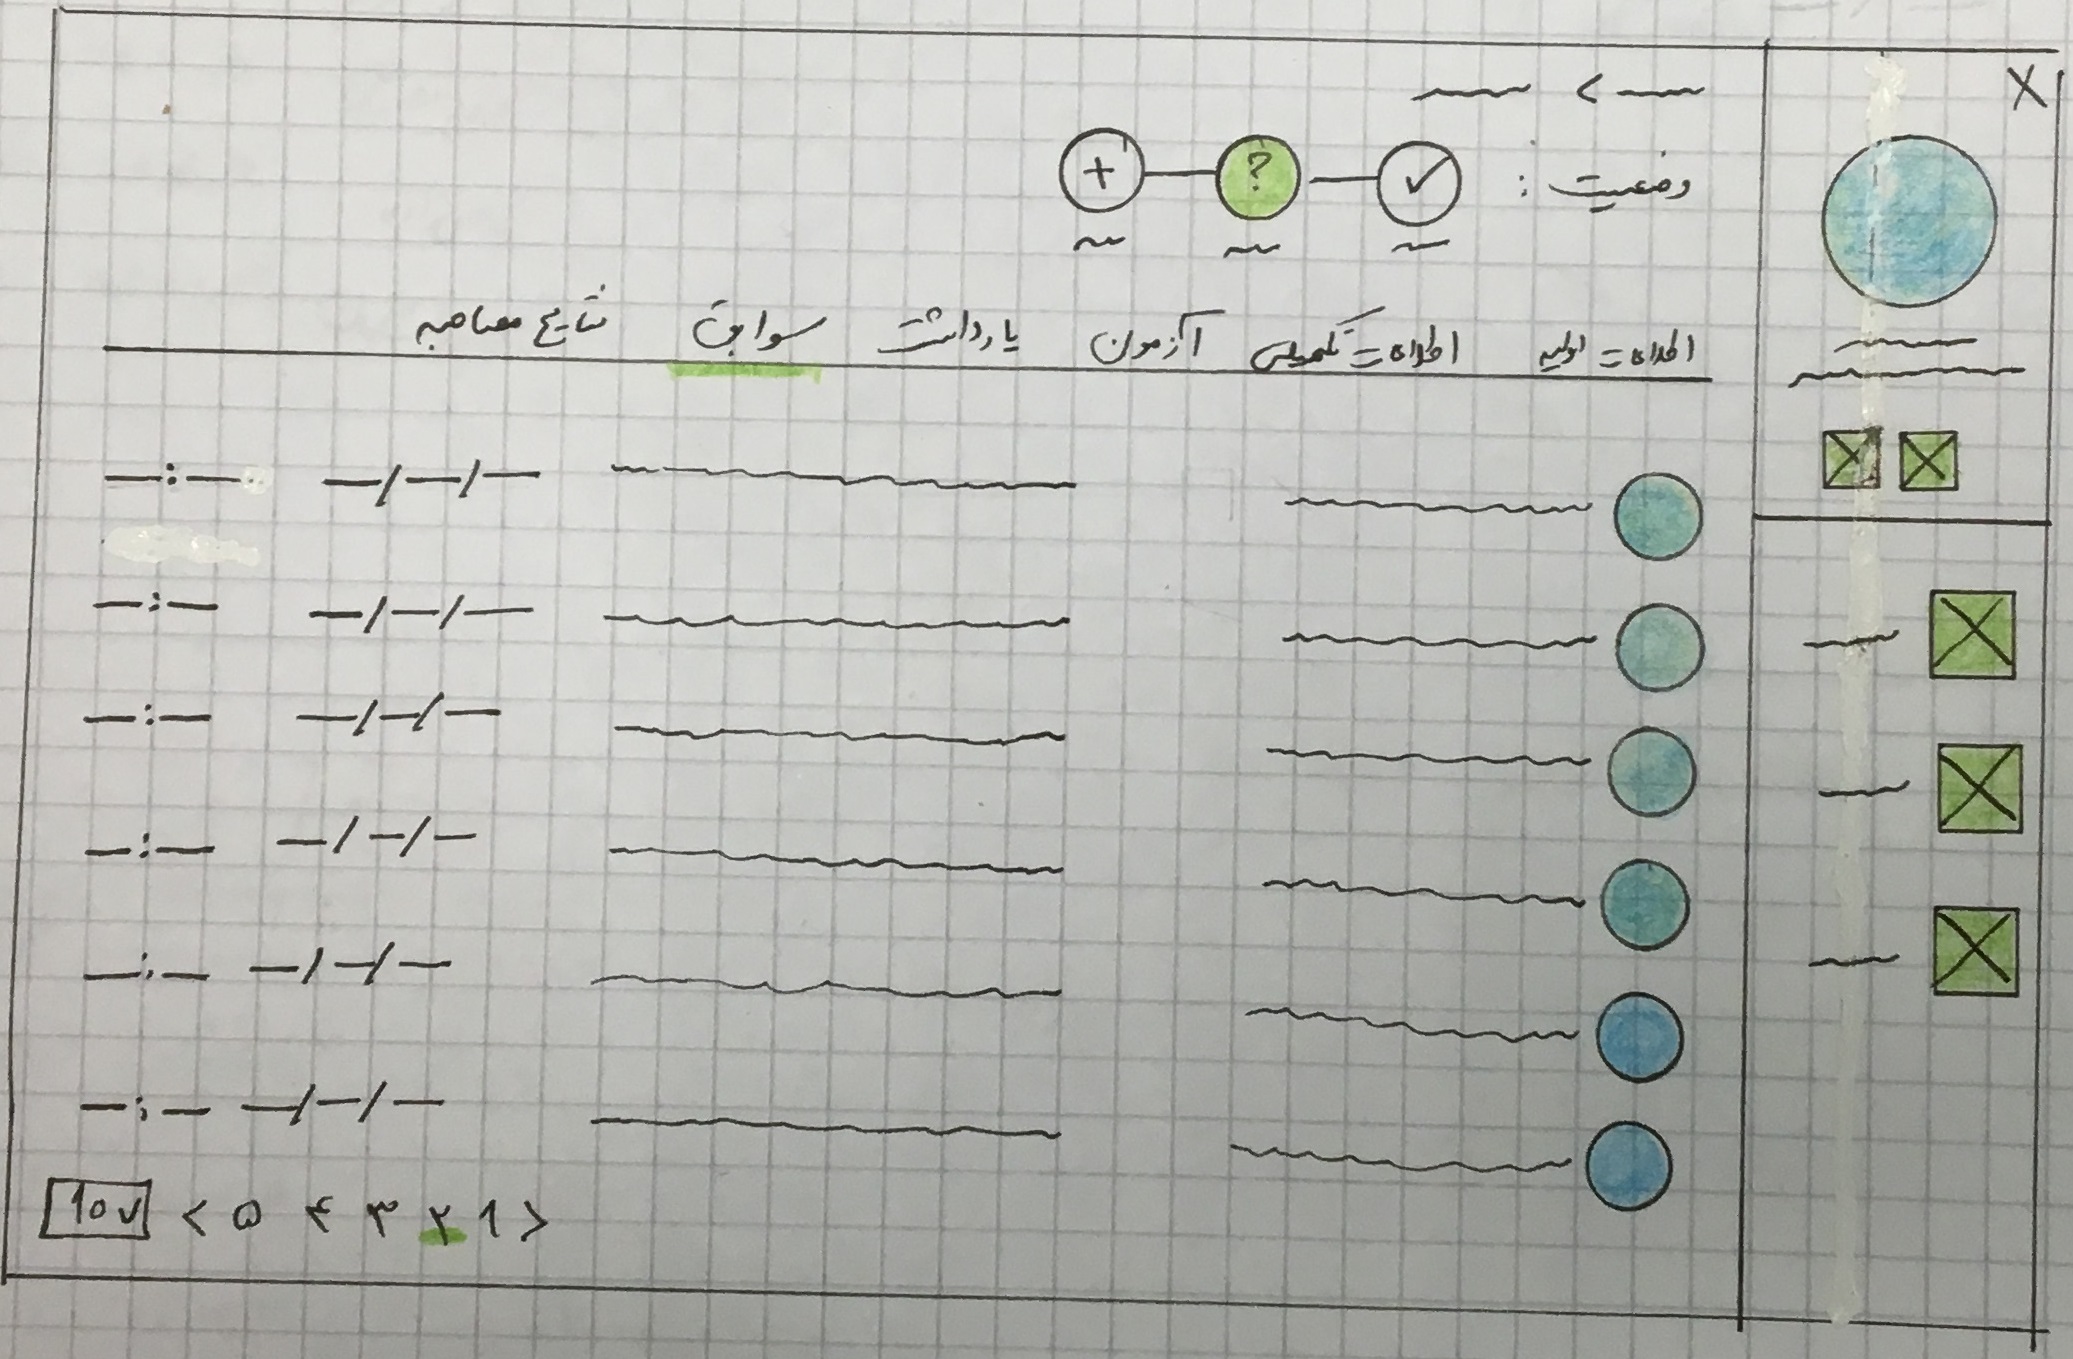 X
>
وضعیت :
✓ ? +
اطلاعات اولیه اطلاعات تکمیلی آزمون یادداشت سوابق نتایج مصاحبه
> ۱ ۲ ۳ ۴ ۵ < 10 ✓